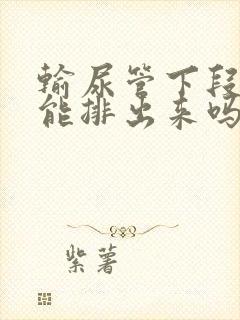 输尿管下段
能排出来吗
紫薯